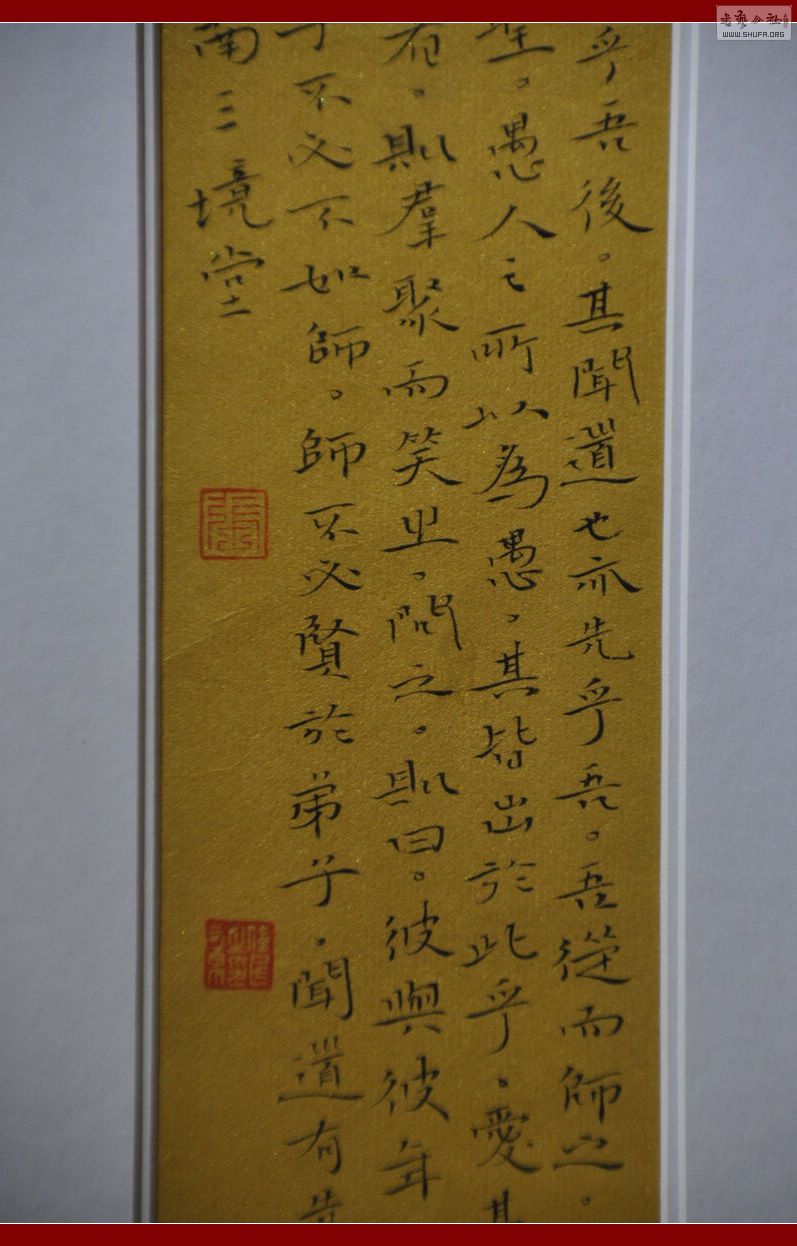 乎吾後。其聞道也亦先乎吾。吾從而師之。
聖。愚人之所以為愚。其皆出於此乎。愛其
者。則羣聚而笑之。問之。則曰。彼與彼年
子不必不如師。師不必賢於弟子。聞道有先
南三境堂
WWW.SHUFA.ORG